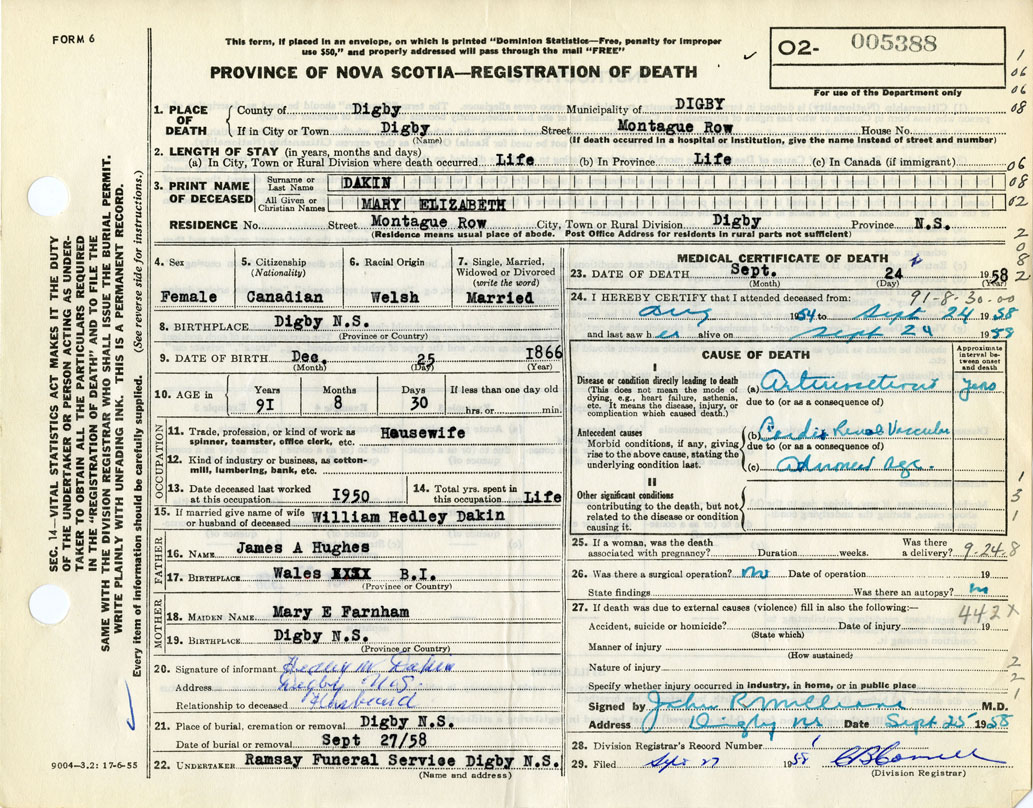 FORM 6
This form, if placed in an envelope, on which is printed "Dominion Statistics—Free, penalty for improper
use $50," and properly addressed will pass through the mail "FREE"
PROVINCE OF NOVA SCOTIA—REGISTRATION OF DEATH
O2- 005388
For use of the Department only
1. PLACE OF DEATH
County of Digby Municipality of DIGBY
If in City or Town Digby Street Montague Row House No.
(Name) (If death occurred in a hospital or institution, give the name instead of street and number)
2. LENGTH OF STAY (in years, months and days)
(a) In City, Town or Rural Division where death occurred Life (b) In Province Life (c) In Canada (if immigrant)
3. PRINT NAME OF DECEASED
Surname or Last Name DAKIN
All Given or Christian Names MARY ELIZABETH
RESIDENCE No. Street Montague Row City, Town or Rural Division Digby Province N.S.
(Residence means usual place of abode. Post Office Address for residents in rural parts not sufficient)
1
06
06
08
06
08
02
2
0
8
2
SEC. 14—VITAL STATISTICS ACT MAKES IT THE DUTY
OF THE UNDERTAKER OR PERSON ACTING AS UNDER-
TAKER TO OBTAIN ALL THE PARTICULARS REQUIRED
IN THE "REGISTRATION OF DEATH" AND TO FILE THE
SAME WITH THE DIVISION REGISTRAR WHO SHALL ISSUE THE BURIAL PERMIT.
WRITE PLAINLY WITH UNFADING INK. THIS IS A PERMANENT RECORD.
Every item of information should be carefully supplied. (See reverse side for instructions.)
4. Sex
Female
5. Citizenship
(Nationality)
Canadian
6. Racial Origin
Welsh
7. Single, Married,
Widowed or Divorced
(write the word)
Married
8. BIRTHPLACE Digby N.S.
(Province or Country)
9. DATE OF BIRTH Dec. 25 1866
(Month) (Day) (Year)
10. AGE in
Years Months Days If less than one day old
91 8 30 hrs. or min.
OCCUPATION
11. Trade, profession, or kind of work as
spinner, teamster, office clerk, etc. Housewife
12. Kind of industry or business, as cotton-
mill, lumbering, bank, etc.
13. Date deceased last worked
at this occupation 1950
14. Total yrs. spent in
this occupation Life
15. If married give name of wife
or husband of deceased William Hedley Dakin
FATHER
16. NAME James A Hughes
17. BIRTHPLACE Wales XXXX B.I.
(Province or Country)
MOTHER
18. MAIDEN NAME Mary E Farnham
19. BIRTHPLACE Digby N.S.
(Province or Country)
20. Signature of informant Dakin
Address Digby N.S.
Relationship to deceased Husband
21. Place of burial, cremation or removal Digby N.S.
Date of burial or removal Sept 27/58
22. UNDERTAKER Ramsay Funeral Service Digby N.S.
(Name and address)
9004—3.2: 17-6-55
MEDICAL CERTIFICATE OF DEATH
23. DATE OF DEATH Sept. 24 1958
(Month) (Day) (Year)
24. I HEREBY CERTIFY that I attended deceased from: 91-8-30-00
Aug 1954 to Sept 24 1958
and last saw her alive on Sept 24 1958
CAUSE OF DEATH
Approximate interval between onset and death
I
Disease or condition directly leading to death
(This does not mean the mode of
dying, e.g., heart failure, asthenia,
etc. It means the disease, injury, or
complication which caused death.)
(a) years
due to (or as a consequence of)
Antecedent causes
Morbid conditions, if any, giving
rise to the above cause, stating the
underlying condition last.
(b) Cardio Renal Vascular
due to (or as a consequence of)
(c) Advanced Age
II
Other significant conditions
contributing to the death, but not
related to the disease or condition
causing it.
1
3
1
25. If a woman, was the death
associated with pregnancy? Duration weeks. Was there
a delivery? 9-24-8
26. Was there a surgical operation? no Date of operation 19
State findings Was there an autopsy? no
27. If death was due to external causes (violence) fill in also the following:— 442X
Accident, suicide or homicide? Date of injury 19
(State which)
Manner of injury
(How sustained)
Nature of injury
Specify whether injury occurred in industry, in home, or in public place
2
2
1
Signed by M.D.
Address Digby NS Date Sept 25 1958
28. Division Registrar's Record Number
29. Filed Sept 27 1958
(Division Registrar)